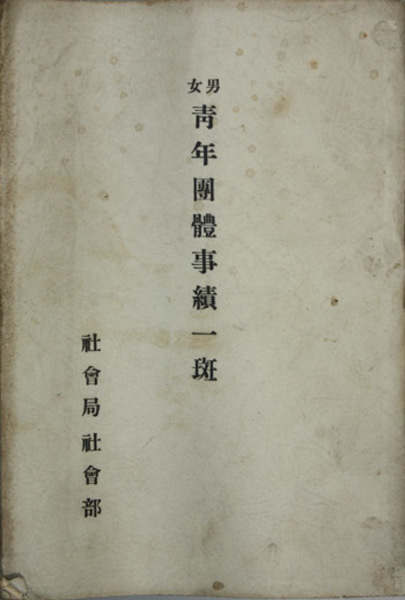 男女
青年團體事績一斑
社會局社會部